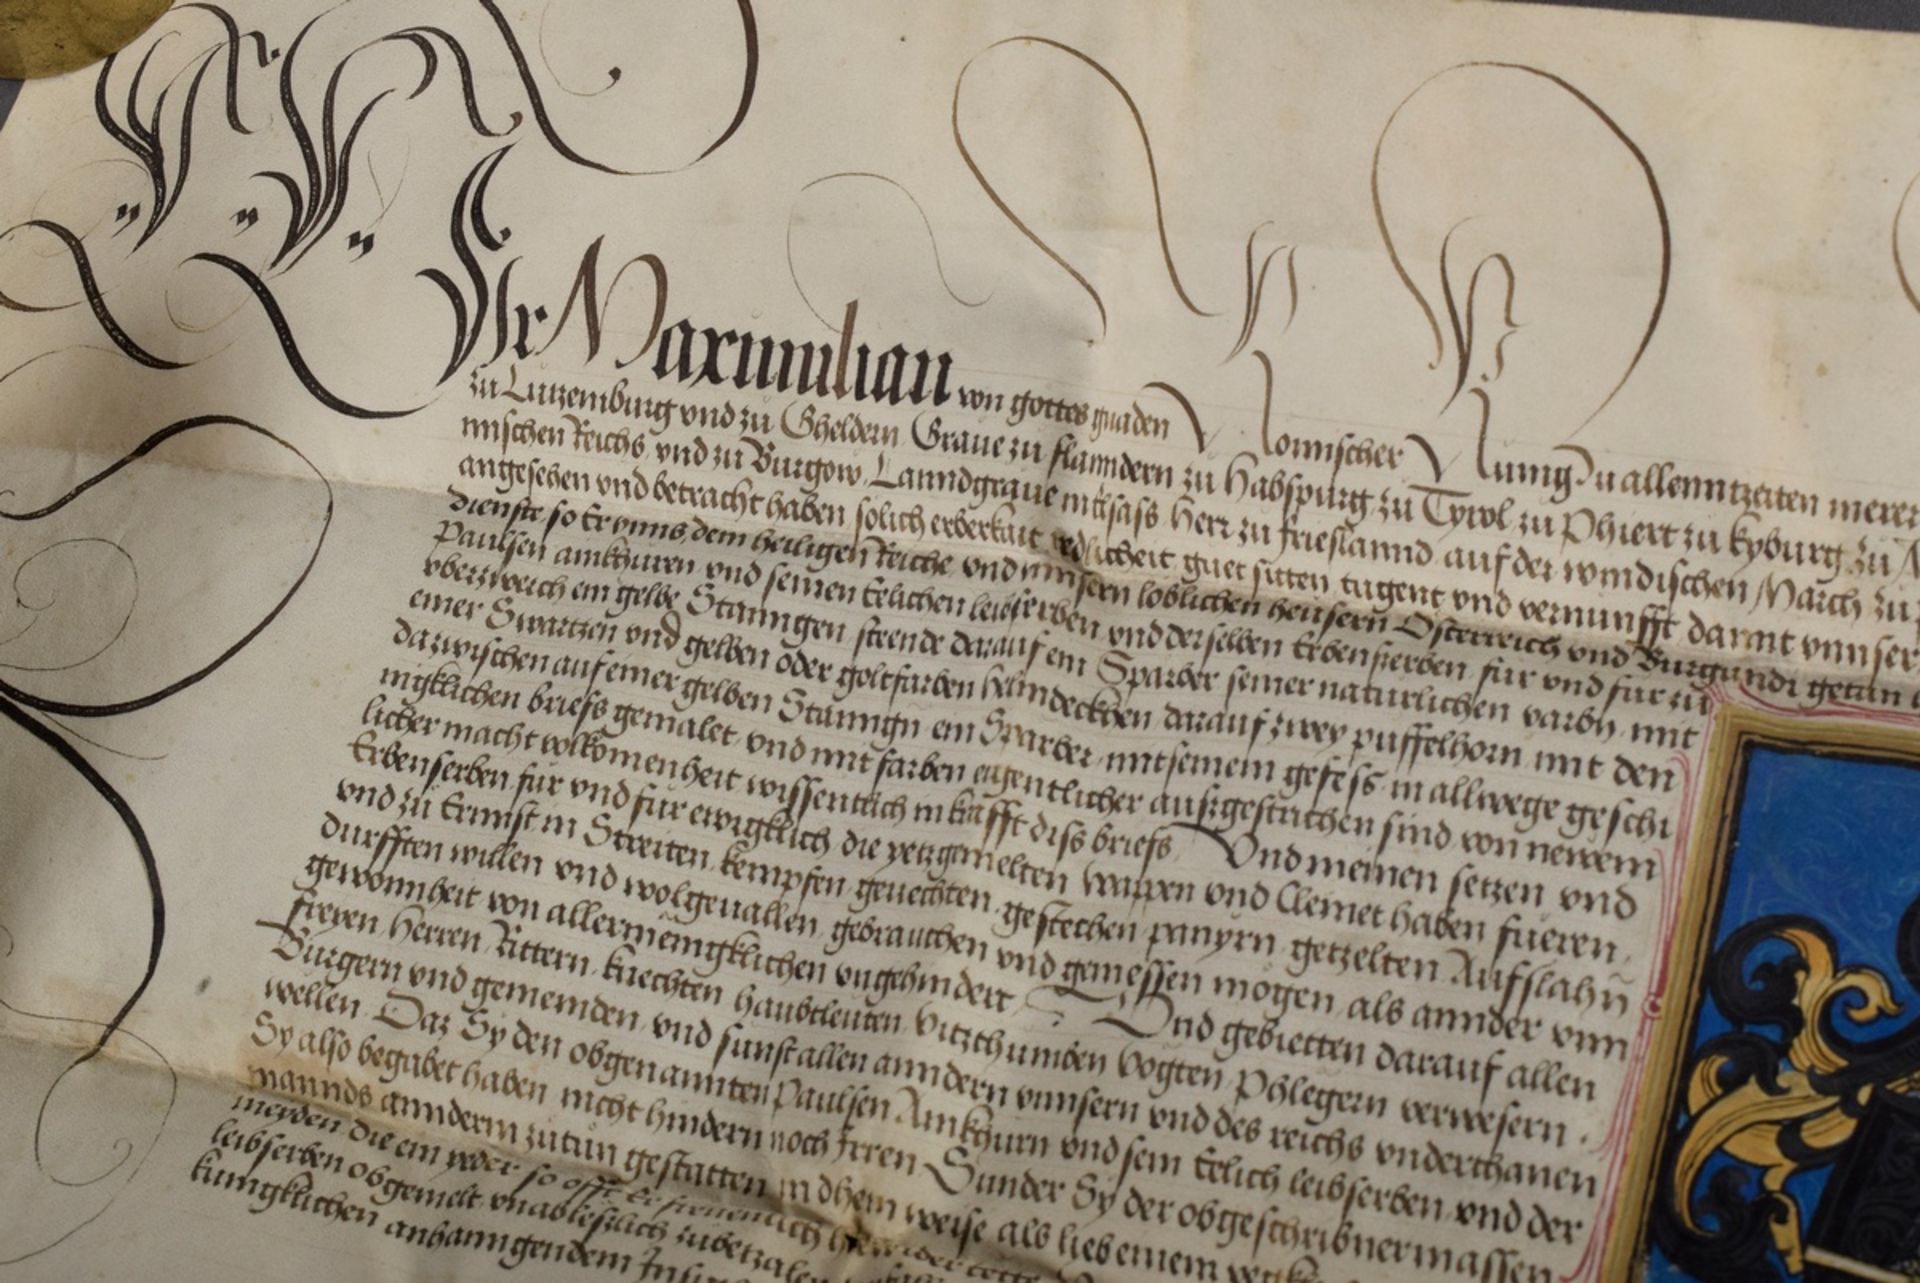 Wir Maximilian von gottes gnaden Romischer Kunig Zu allenntzeiten merer
zu Lutzemburg vnd zu Gheldern Graue zu flanndern zu Habspurg zu Tyrol zu Phiert zu kyburg zu
mischen Reichs vnd zu Burgow Lanndgraue in Elsass Herr zu frieslannd auf der windischen March zu
angesehen vnd betracht haben solich erberkait redlicheit guet sitten tugent vnd vernunfft damit vnnser
dienste so Er vnns dem heiligen Reiche vnd vnnsern loblichen hewsern Osterreich vnd Burgundi getan
Paulsen amkhuren vnd seinen Eelichen leibserben vnd derselben Erbenserben fur vnd fur zu
vberzwerch ein gelbe Stanngen steende darauf ein Sparber seiner naturlichen varbn mit
einer Swartzen vnd gelben oder goltfarben helmdeckhen darauf zwey puffelhorn mit den
dazwischen auf einer gelben Stanngn ein Sparber mit seinem gefess in allwege geschi
nigklichen briefs gemalet vnd mit farben eigentlicher ausgestrichen sind von newem
licher macht volkomenheit wissentlich in krafft diss briefs Vnd meinen setzen vnd
Erbenserben fur vnd fur ewigklich die yetzgemelten Wappen vnd Cleinet haben fueren
vnd zu Ernnst in Streiten kempfen geuechten gestechen panyrn getzelten Aufslahn
durfften willen vnd wolgeuallen gebrauchen vnd geniessen mogen als annder vnn
gewonnheit von allermenigklichen vngehindert Vnd gebietten darauf allen
freyen Herren Rittern knechten haubtleuten Vitzthumben Vogten Phlegern verwesern
Burgern vnd gemeinden vnd sunst allen anndern vnnsern vnd des reichs vnderthanen
wellen Daz Sy den obgenannten Paulsen Amkhurn vnd sein Eelich leibserben vnd der
Sy also begabet haben nicht hindern noch Irren Sunder Sy der obgeschribnermassen
mannds anndern zutun gestatten in dhein weise als lieb einem
meyden die ein yeder so offt Er freuenlich hiewider tette
leibserben obgemelt vnableslich zubetzalen
kunigklichen anhanngendem